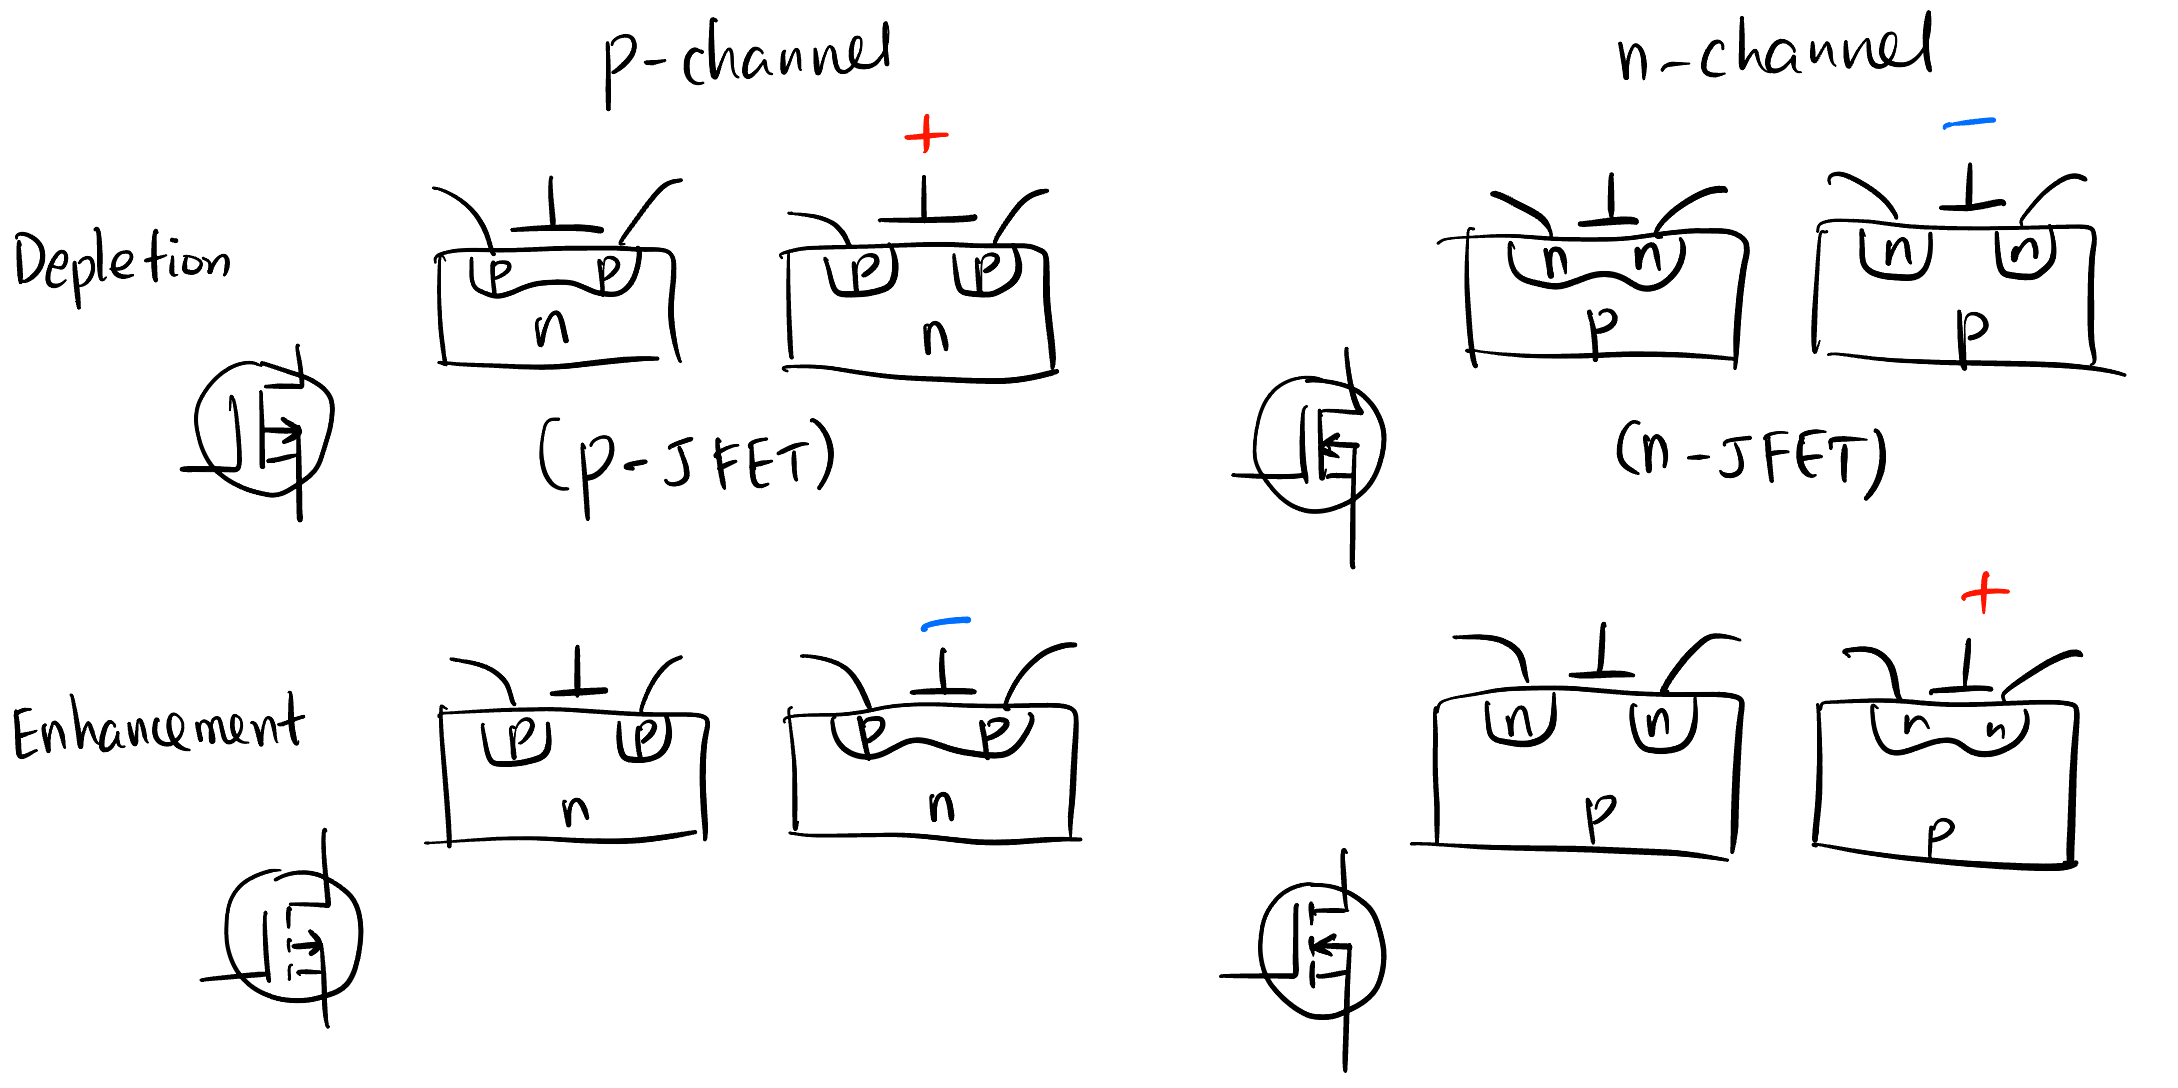 p-channel
n-channel
+
−
Depletion
p p
n
p p
n
n n
p
n n
p
(p-JFET)
(n-JFET)
−
+
Enhancement
p p
n
p p
n
n n
p
n n
p